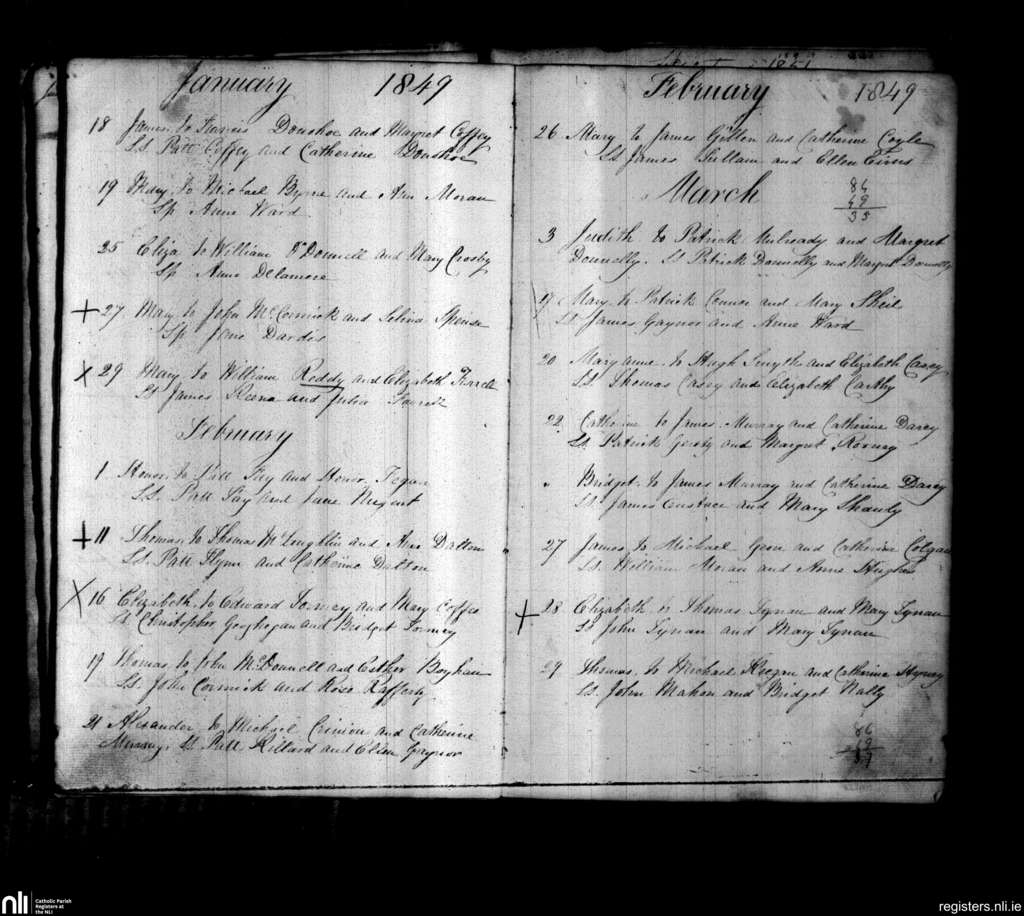 January 1849
18 James to Francis Donohoe and Margret Coffey
Ss Patt Coffey and Catherine Donohoe
19 Mary to Michael Byrne and Ann Moran
Sp Anne Ward
25 Eliza to William O'Donnell and Mary Crosby
Sp Anne Delamere
+ 27 Mary to John McCormick and Selina Spouse
Sp Jane Dardis
X 29 Mary to William Reddy and Elizabeth Farrell
Ss James Keena and Julia Farrell
February
1 Honor to Patt Fay and Honor Fegan
Ss Patt Fay and Jane Nugent
+ 11 Thomas to Thomas McLoughlin and Ann Dalton
Ss Patt Flynn and Catherine Dalton
X 16 Elizabeth to Edward Tormey and Mary Coffee
Ss Christopher Geoghegan and Bridget Tormey
19 Thomas to John McDonnell and Esther Boyhan
Ss John Cormick and Rose Rafferty
21 Alexander to Michael Crinion and Catherine
Murray Ss Patt Killard and Ellen Gaynor
1821
February 1849
26 Mary to James Gillen and Catherine Coyle
Ss James Gillain and Ellen
March
84
49
35
3 Judith to Patrick Mulready and Margret
Donnelly. Ss Patrick Donnelly and Margret Donnelly
17 Mary to Patrick Connor and Mary Sheil
Ss James Gaynor and Anne Ward
20 Maryanne to Hugh Smyth and Elizabeth Casey
Ss Thomas Casey and Elizabeth Carthy
22 Catherine to James Murray and Catherine Darcy
Ss Patrick and Margret
" Bridget to James Murray and Catherine Darcy
Ss James Eustace and Mary Shandy
27 James to Michael Geon and Catherine Colgan
Ss William Moran and Anne Hughes
+ 28 Elizabeth to Thomas Tynan and Mary Tynan
Ss John Tynan and Mary Tynan
29 Thomas to Michael Keegan and Catherine
Ss John Mahon and Bridget Nally
86
49
37
nli
Catholic Parish
Registers at
the NLI
registers.nli.ie